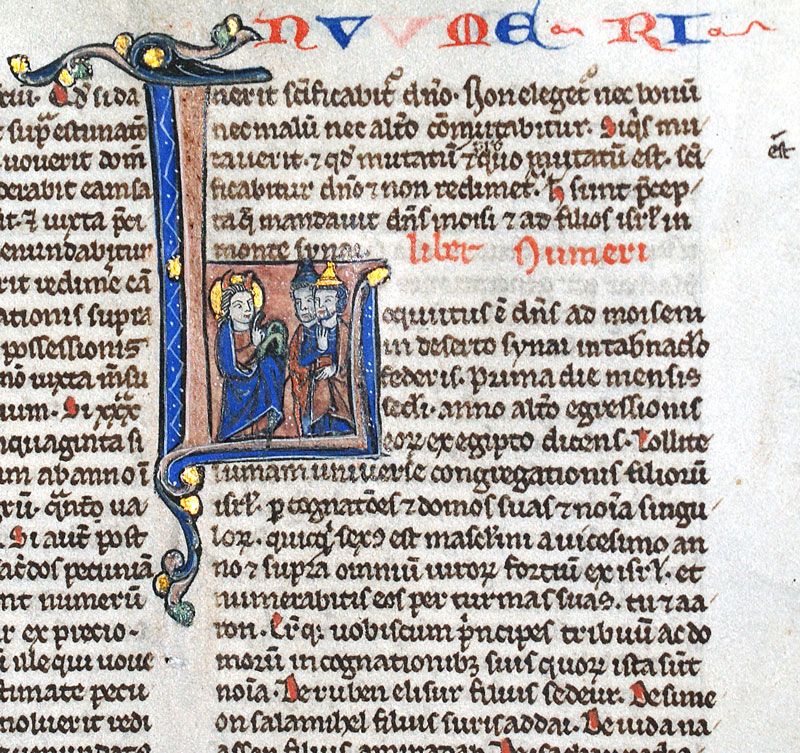 NUMERI
sup estimatō
uouerit dom̄
derabit eam sa
it ⁊ iuxta p̄ci
enundabitur
rit redim̄e eā
ationis supra
possessionis
nō iuxta m̄su
ium. Si xxx
inquaginta si
um ab anno ī
Si aut̄ post
acdos pecuniā
nt numerū
r ex precio.
ille qui uoue
stimate pecu
noluerit redi
nerit sc̄ificabit̄ dn̄o. Non eleget̄ nec bonū
nec malū nec alt̄o cōmutabitur. Si q̄s mu
tauerit. ⁊ qd̄ mutatū ⁊ ꝓ quo mutatū est. sc̄i
ficabitur dn̄o ⁊ non redimet̄. H̄ sunt p̄cep
ta q̄ mandauit dn̄s moisi ⁊ ad filios isrl̄ in
monte synai.
liber Numeri
Loquutus ē dn̄s ad moisen
in deserto synai in tab̄nac̄lo
federis. Prima die mensis
sec̄di. anno alt̄o egressionis
eoꝝ ex egipto dicens. Tollite
sumam uniuerse congregationis filioꝝ
isrl̄. ꝑ cognatōes ⁊ domos suas ⁊ noīa singu
loꝝ. quicq̄d sexꝰ est masc̄lini a uicesimo an
no ⁊ supra omniū uiroꝝ fortiū ex isrl̄. et
numerabitis eos per turmas suas. tu ⁊ aa
ron. Er̄tq; uobiscum p̄ncipes tribuū ac do
morū in cognationibꝫ suis quoꝝ ista sūt
noīa. De ruben elisur filius sedeur. De sime
on salamihel filius surisaddai. De iuda na
assen filius aminadab. De
ēst